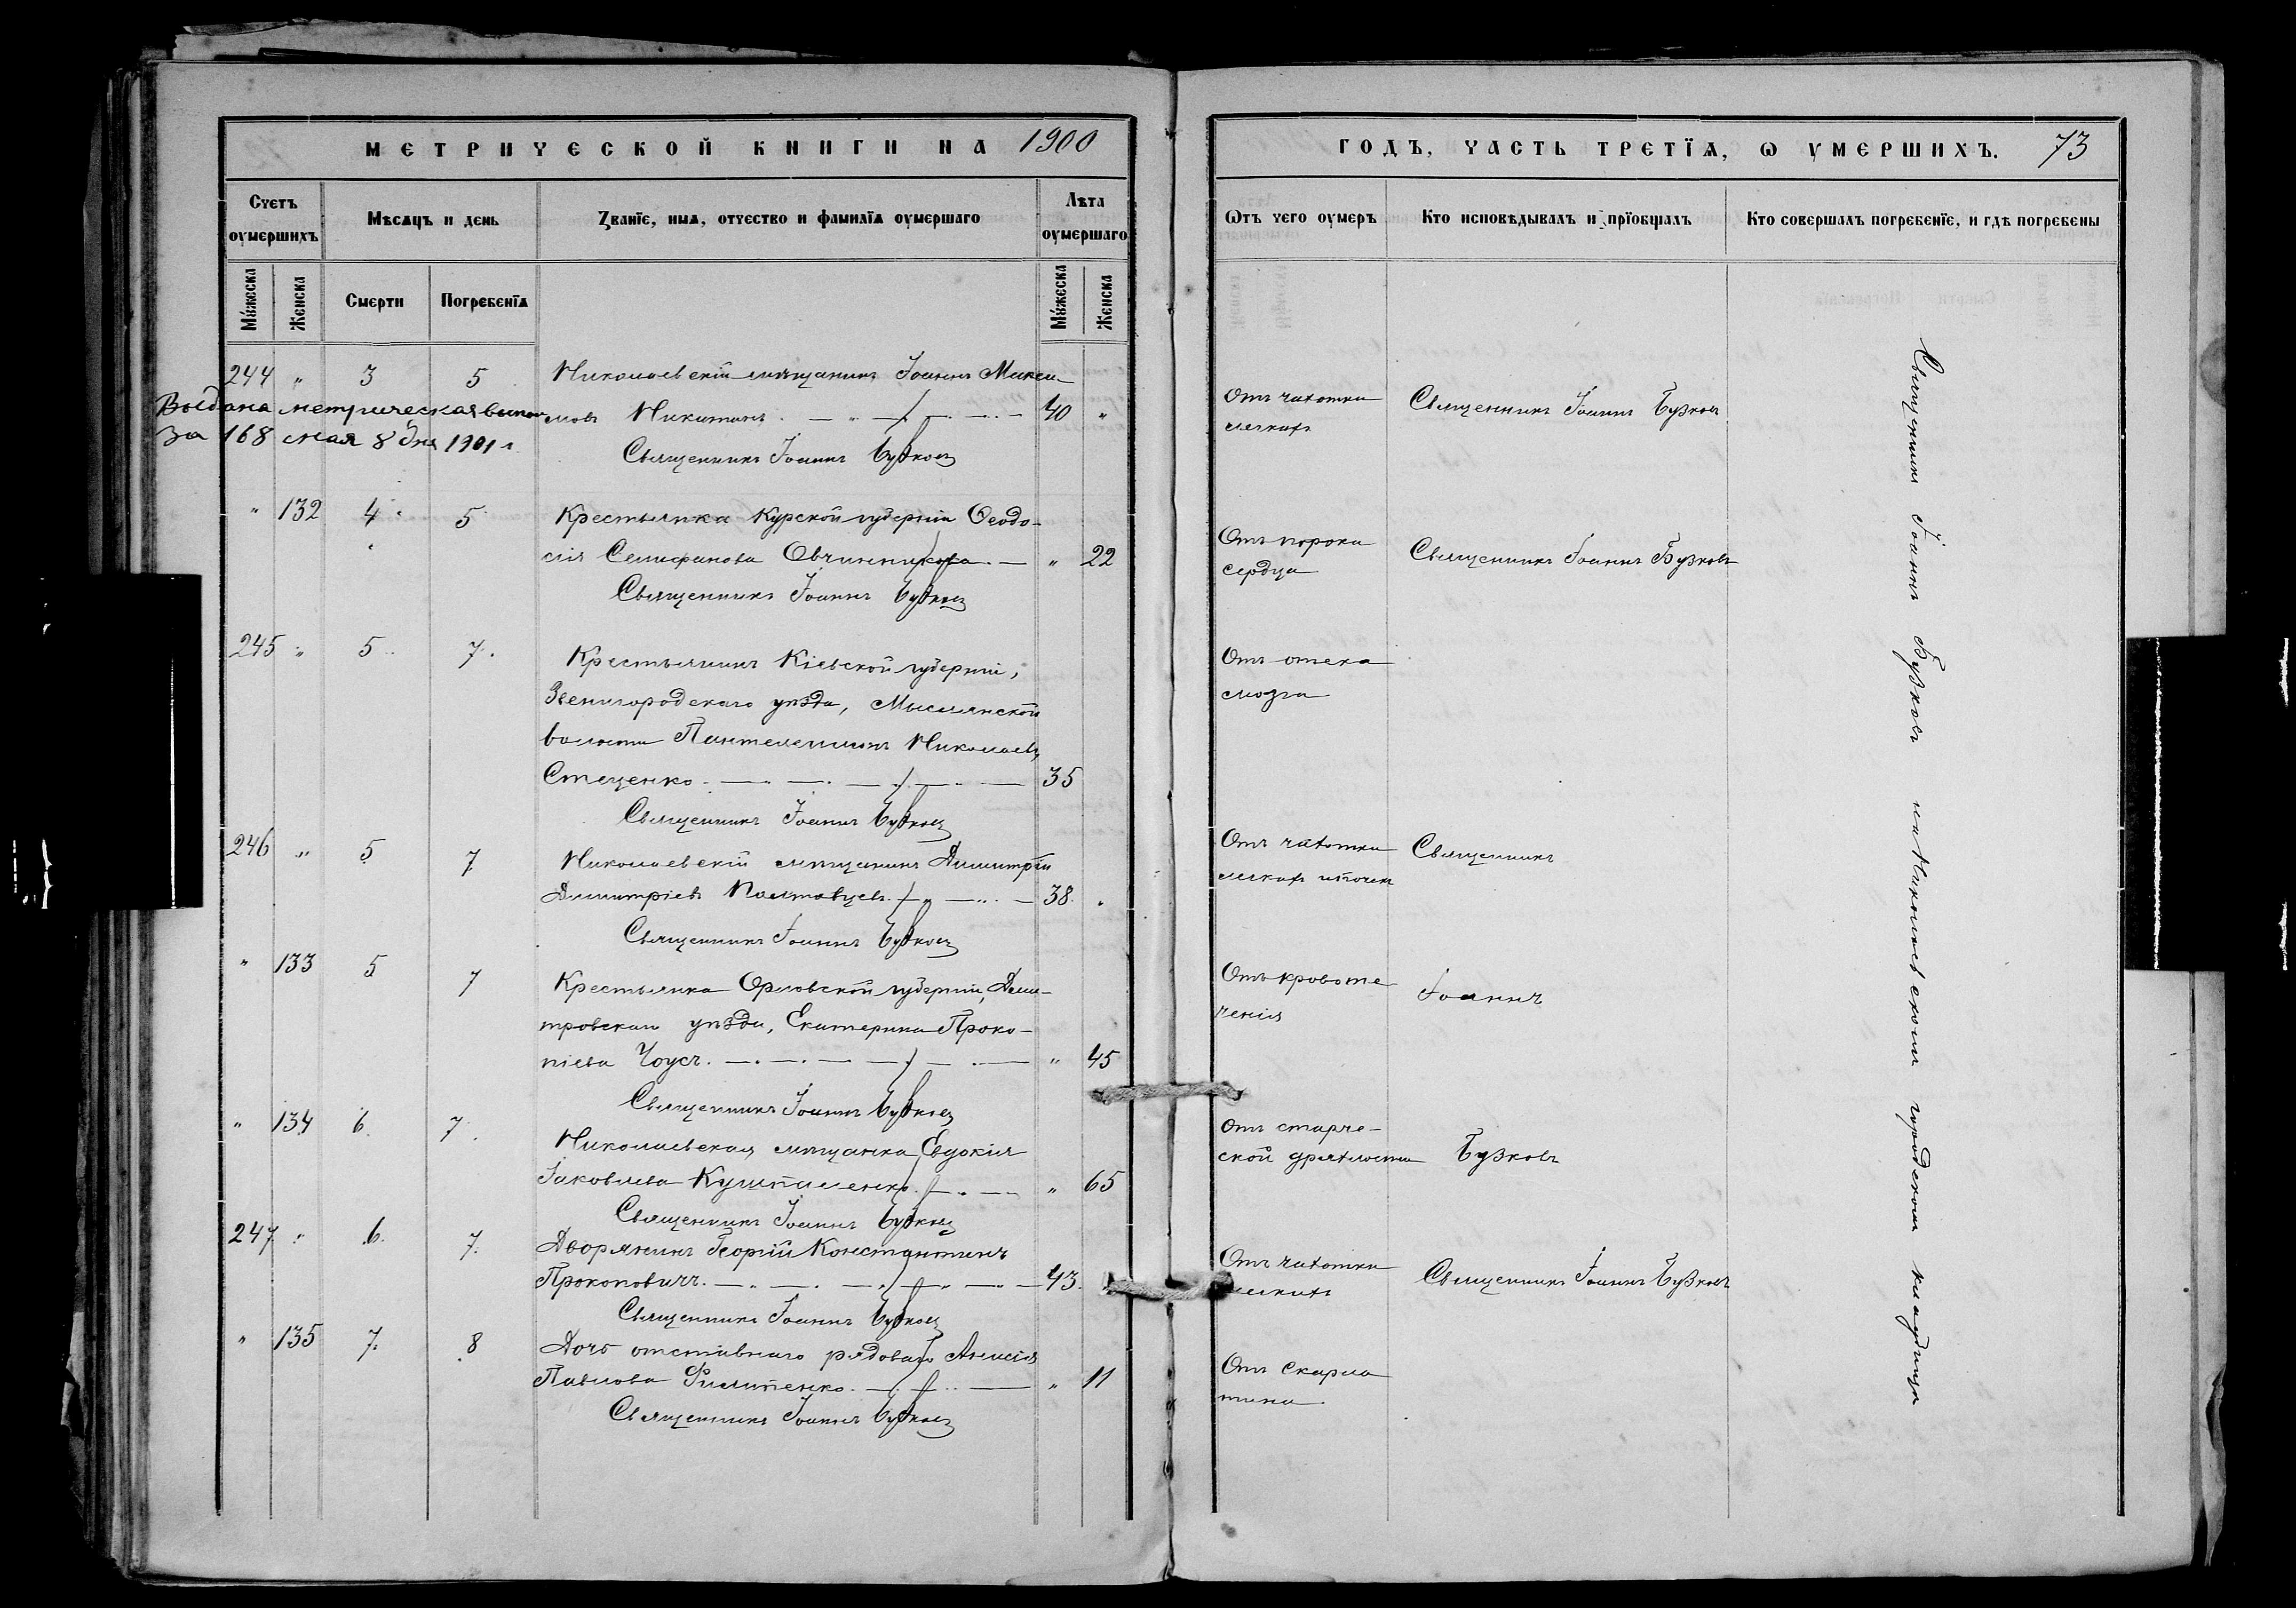 МЕТРИЧЕСКОЙ КНИГИ НА 1900
Счетъ оумершихъ
Мѣсяцъ и день
Званіе, имя, отчество и фамилія оумершаго
Лѣта оумершаго
Мужеска
Женска
Смерти
Погребенія
Мужеска
Женска
244 " 3 5 Николаевскій мѣщанинъ Іоаннъ Макси-
Выдана метрическая выпись
мовъ Никитинъ 40 "
за 168 мая 8 дня 1901 г.
Священникъ Іоаннъ Бузковъ
" 132 4 5 Крестьянка Курской губерніи Ѳеодо-
сія Селифанова Овчинникова " 22
Священникъ Іоаннъ Бузковъ
245 " 5 7 Крестьянинъ Кіевской губерніи,
Звенигородскаго уѣзда, Мыслянской
волости Пантелеимонъ Николаевъ
Стеценко 35
Священникъ Іоаннъ Бузковъ
246 " 5 7 Николаевскій мѣщанинъ Димитрій
Димитріевъ Полтавцевъ 38 "
Священникъ Іоаннъ Бузковъ
" 133 5 7 Крестьянка Орловской губерніи, Дми-
тровскаго уѣзда, Екатерина Проко-
піева Чоусъ " 45
Священникъ Іоаннъ Бузковъ
" 134 6 7 Николаевская мѣщанка Евдокія
Іаковлева " 65
Священникъ Іоаннъ Бузковъ
247 " 6 7 Дворянинъ Георгій Константинъ
Прокоповичъ 43
Священникъ Іоаннъ Бузковъ
" 135 7 8 Дочь отставнаго рядоваго Анисія
Павлова Филипенко " 11
Священникъ Іоаннъ Бузковъ
ГОДЪ, ЧАСТЬ ТРЕТІЯ, Ѡ УМЕРШИХЪ. 73
Ѿтъ чего оумеръ
Кто исповѣдывалъ и пріобщалъ
Кто совершалъ погребеніе, и гдѣ погребены
Отъ чахотки Священникъ Іоаннъ Бузковъ
легкихъ
Отъ порока
сердца Священникъ Іоаннъ Бузковъ
Отъ отека
мозга
Отъ чахотки Священникъ
легкихъ и почек
Отъ кровоте
ченія Іоаннъ
Отъ старче-
ской дряхлости Бузковъ
Отъ чахотки
легкихъ Священникъ Іоаннъ Бузковъ
Отъ скарла
тина
Священникъ Іоаннъ Бузковъ на Николаевскомъ городскомъ кладбищѣ